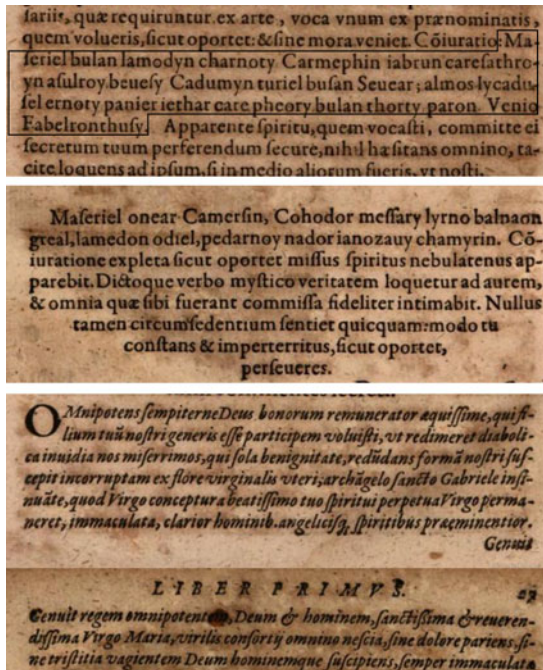 sariis, quæ requiruntur ex arte, voca vnum ex prænominatis,
quem volueris, sicut oportet: & sine mora veniet. Cõiuratio: Ma-
seriel bulan lamodyn charnoty Carmephin iabrun caresathro-
yn asulroy beuesy Cadumyn turiel busan Seuear; almos lycadu-
sel ernoty panier iethar care pheory bulan thorty paron Venio
Fabelronthusy. Apparente spiritu, quem vocasti, committe ei
secretum tuum perferendum secure, nihil hæsitans omnino, ta-
cite loquens ad ipsum, si in medio aliorum fueris, vt nosti.
Maseriel onear Camersin, Cohodor messary lyrno balnaon
greal, lamedon odiel, pedarnoy nador ianozauy chamyrin. Cõ-
iuratione expleta sicut oportet missus spiritus nebulatenus ap-
parebit. Dictoque verbo mystico veritatem loquetur ad aurem,
& omnia quæ sibi fuerant commissa fideliter intimabit. Nullus
tamen circumsedentium sentiet quicquam: modo tu
constans & imperterritus, sicut oportet,
perseueres.
OMnipotens sempiterne Deus bonorum remunerator æquissime, qui fi-
lium tuũ nostri generis esse participem voluisti, vt redimeret diaboli-
ca inuidia nos miserrimos, qui sola benignitate, redũdans formã nostri sus-
cepit incorruptam ex flore virginalis vteri; archãgelo sancto Gabriele insi-
nuãte, quod Virgo conceptura beatissimo tuo spiritui perpetua Virgo perma-
neret, immaculata, clarior hominib. angelicisq, spiritibus præeminentior.
Genuit
LIBER PRIMVS.
Genuit regem omnipotentem, Deum & hominem, sanctissima & reueren-
dissima Virgo Maria, virilis consortij omnino nescia, sine dolore pariens, si-
ne tristitia vagientem Deum hominemque suscipiens, semper immaculata